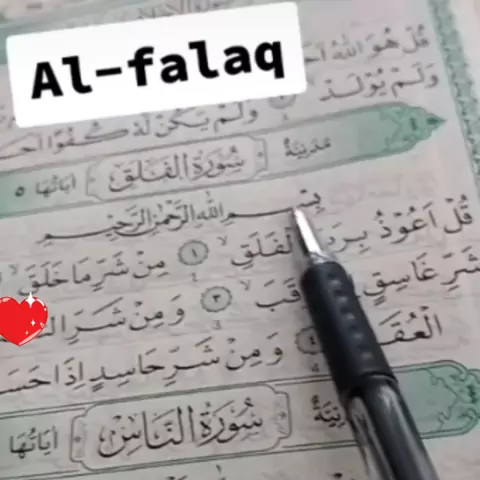 Al-falaq
قُلْ هُوَ اللّٰهُ
وَلَمْ يُولَدْ وَلَمْ يَكُنْ لَهُ كُفُوًا
مَدَنِيَّةٌ سُورَةُ الْفَلَقِ اٰيَاتُهَا ٥
بِسْمِ اللّٰهِ الرَّحْمٰنِ الرَّحِيمِ
قُلْ اَعُوذُ الْفَلَقِ ١ مِنْ شَرِّ مَا خَلَقَ
شَرِّ غَاسِقٍ وَمِنْ شَرِّ
الْعُقَدِ ٤ وَمِنْ شَرِّ حَاسِدٍ اِذَا
سُورَةُ النَّاسِ اٰيَاتُهَا